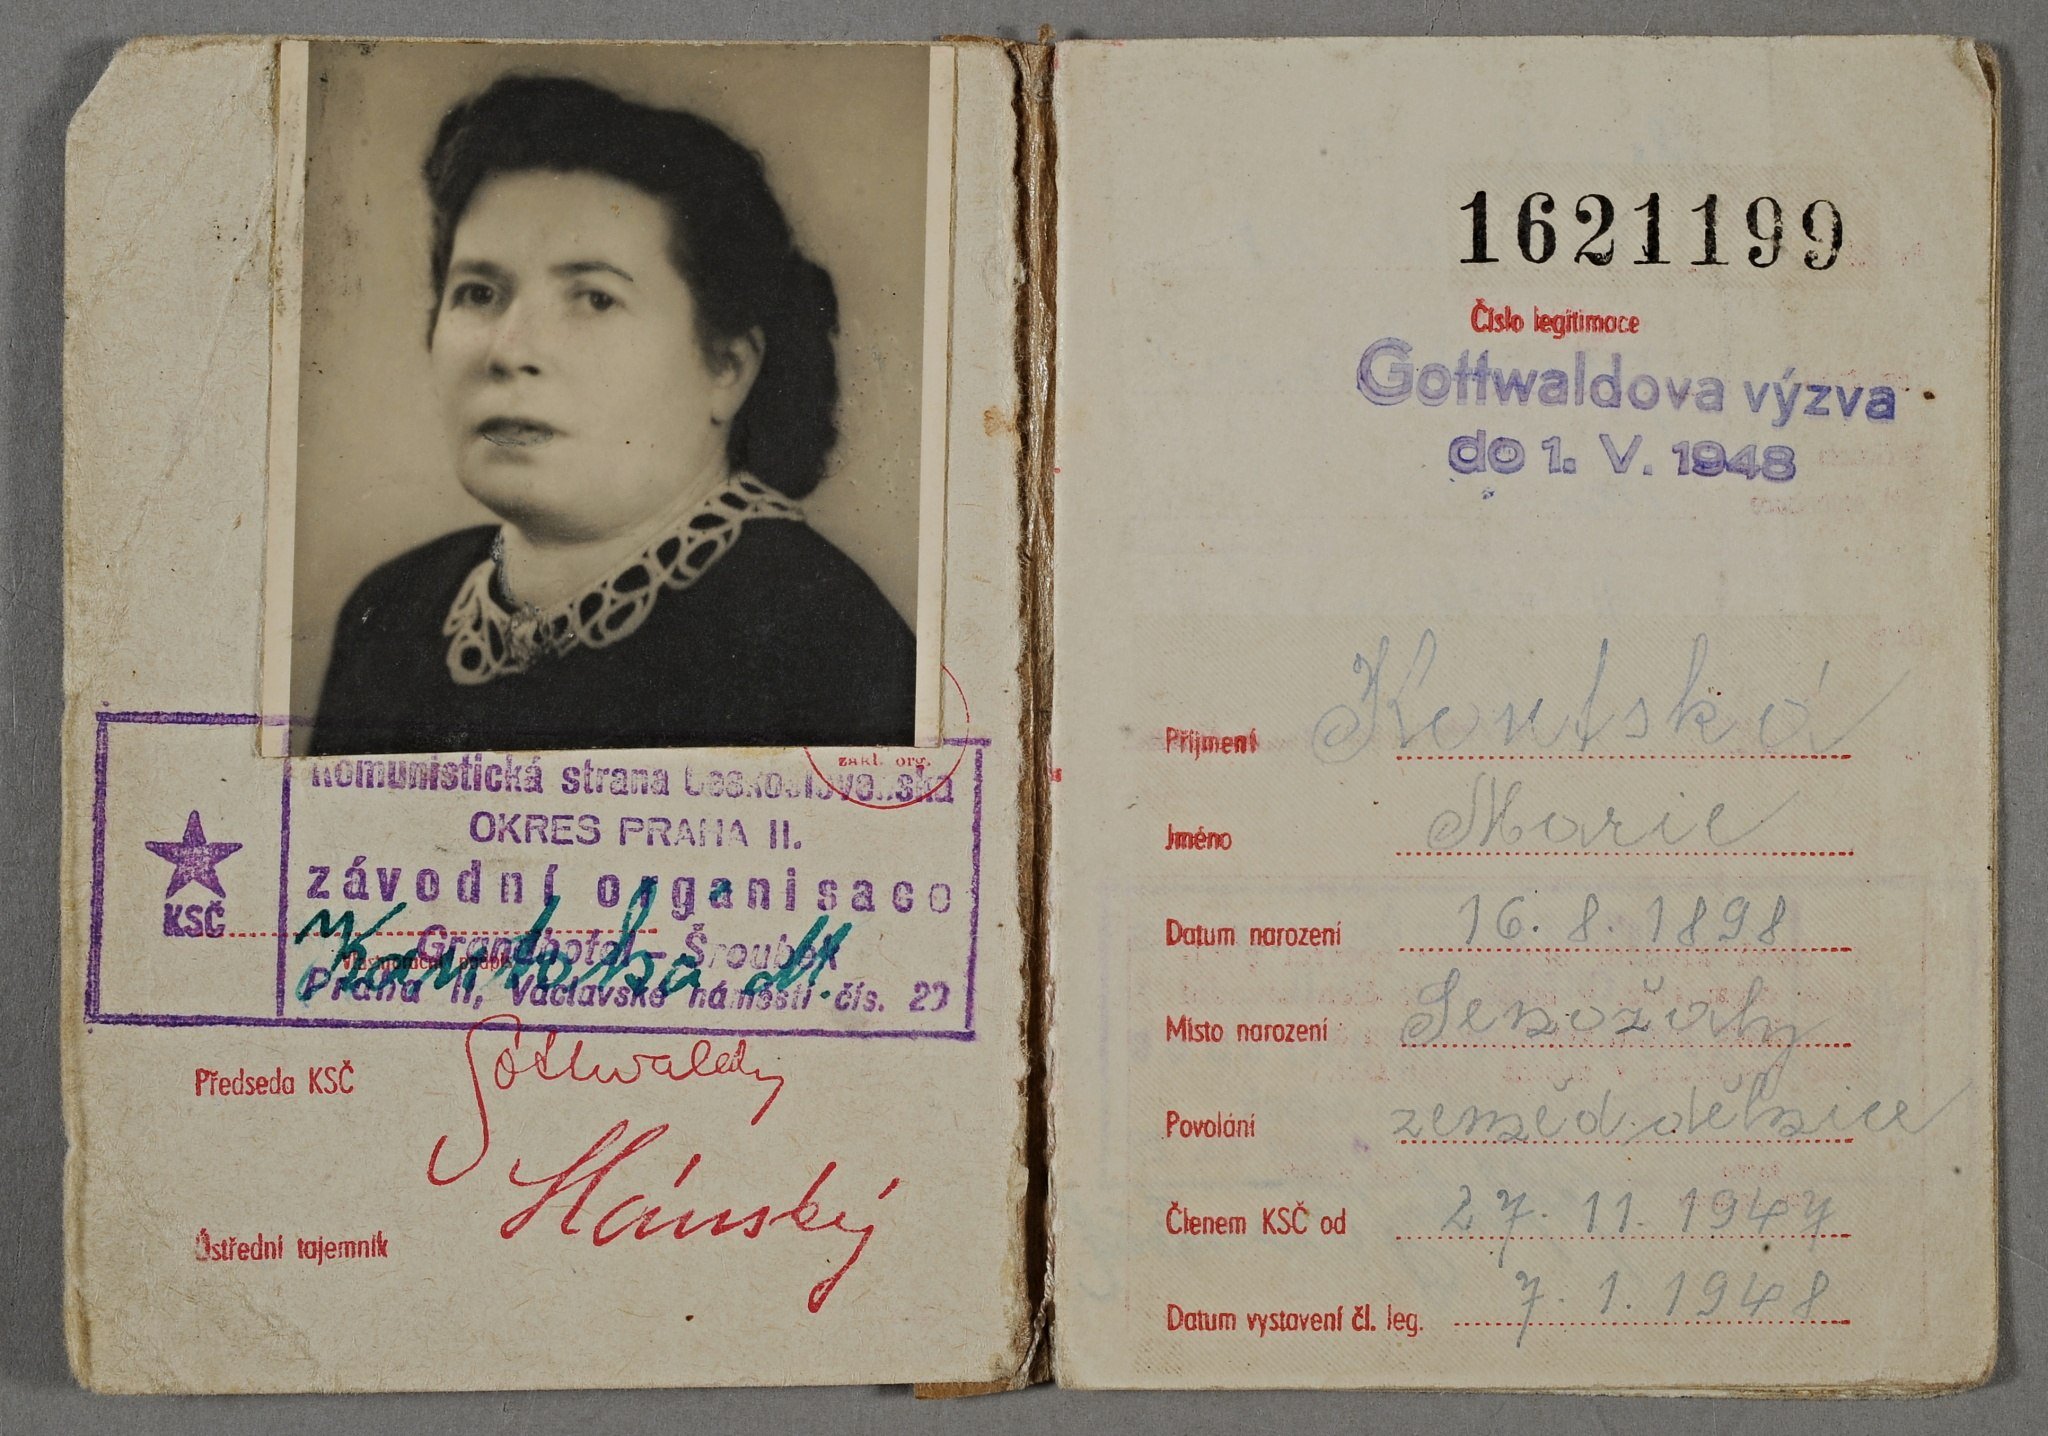 zákl. org.
Komunistická strana Československa
OKRES PRAHA II.
závodní organisace
KSČ
Grandhotel – Šroubek
Praha II, Václavské náměstí čís. 29
Předseda KSČ Gottwald
Slánský
Ústřední tajemník
1621199
Číslo legitimace
Gottwaldova výzva
do 1. V. 1948
Příjmení
Jméno Marie
Datum narození 16. 8. 1898
Místo narození Senožaty
Povolání zeměd. dělnice
Členem KSČ od 27. 11. 1947
Datum vystavení čl. leg. 7. 1. 1948